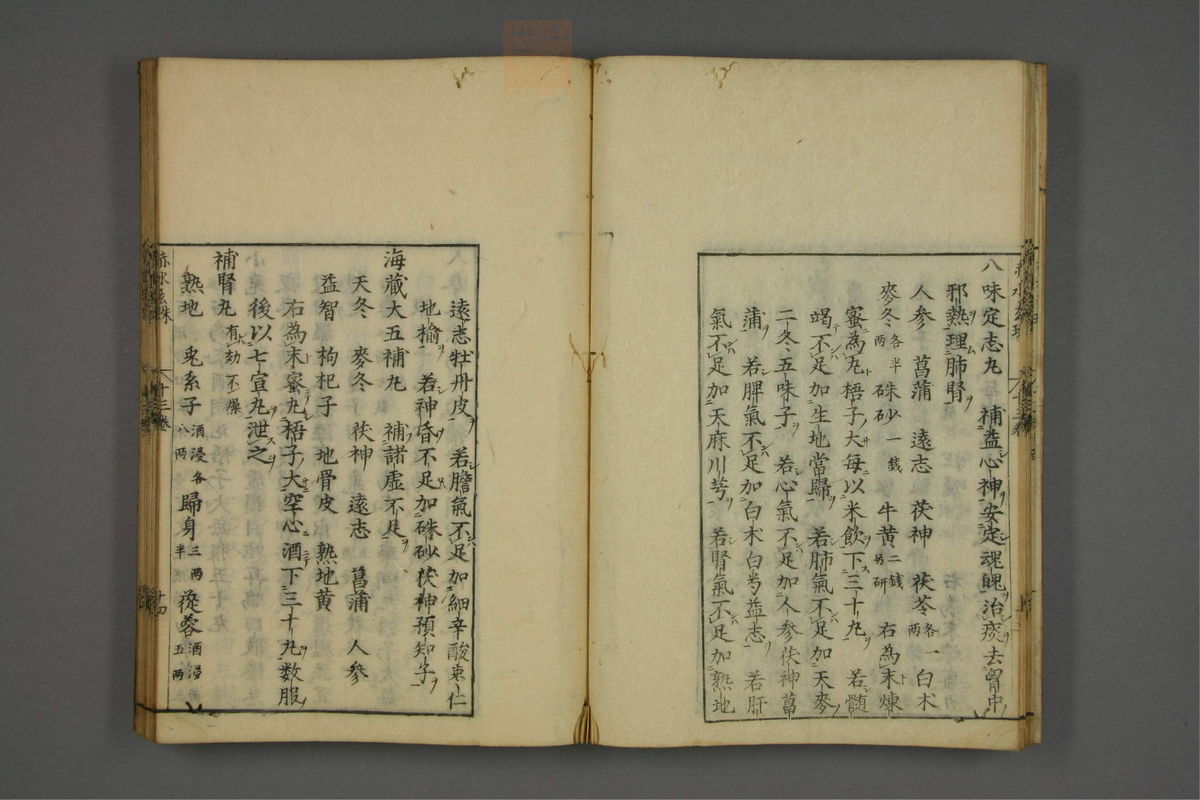 八味定志丸　補益心神安定魂魄治痰去胷中
邪熱理肺腎
人參　菖蒲　遠志　茯神　茯苓各一两　白朮
麥冬各半两　硃砂一錢　牛黄二錢另研　右為末煉
蜜為丸梧子大每以米飲下三十丸　若髓
竭不足加生地當歸　若肺氣不足加天麥
二冬五味子　若心氣不足加人參茯神菖
蒲　若脾氣不足加白朮白芍益志　若肝
氣不足加天麻川芎　若腎氣不足加熟地
遠志牡丹皮　若膽氣不足加細辛酸棗仁
地榆　若神昏不足加硃砂茯神預知子
海藏大五補丸　補諸虛不足
天冬　麥冬　茯神　遠志　菖蒲　人參
益智　枸杞子　地骨皮　熟地黄
右為末蜜丸梧子大空心酒下三十丸数服
後以七宣丸泄之
補腎丸　有効不燥
熟地　兎糸子酒浸各八两　歸身三两半　蓯蓉酒浸五两
赤水玄珠　十三卷　十四